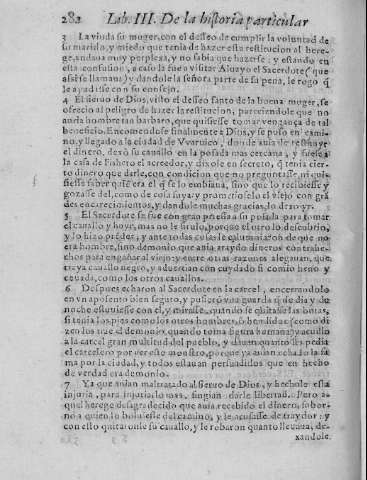 282 Lib. III. De la historia particular
3 La viuda su moger, con el desseo de cumplir la voluntad de
su marido, y miedo que tenia de hazer esta restitucion al here-
ge, andaua muy perplexa, y no sabia que hazerse: y estando en
esta confusion, a caso la fue a visitar Aluayo el Sacerdote (que
assi se llamaua) y dandole la señora parte de su pena, le rogò q̃
le ayudisse con su consejo.
4 El sieruo de Dios, visto el desseo santo de la buena muger, se
ofrecio al peligro de hazer la restitucion, pareciendole que no
auria hombre tan barbaro, que quisiesse tomar vengança de tal
beneficio. Encomendose finalmente a Dios, y se puso en cami-
no, y llegado a la ciudad de Vvaruico, donde auia de restituyr
el dinero, dexò su cauallo en la posada mas cercana, y fuesse a
la casa de Fishero el acreedor, y dixole en secreto, q̃ tenia cier-
to dinero que darle, con condicion que no preguntasse, ni qui-
siesse saber quiẽ era el q̃ se lo embiaua, sino que lo recibiesse y
gozasse del, como de cosa suya: y prometioselo el viejo con grã
des encarecimientos, y dandole muchas gracias, lo dexò yr.
5 El Sacerdote se fue con gran priessa a su posada para tomar
el cauallo y
y lo hizo prẽder, y ante todas cosas le
era hombre, sino demonio que auia traydo dineros contrahe-
chos para engañar al viejo: y entre otras razones alegauan, que
traya cauallo negro, y aduertian con cuydado si comia heno y
ceuada, como los otros cauallos.
6 Despues echaron al Sacerdote en la carcel, encerrandolo
en vn aposento bien seguro, y pusierõ vna guarda q̃ de dia y de
noche estuuiesse con el, y mirasse, quando se quitasse las botas,
si tenia los pies como los otros hombres, o hendidas (como di
zen los tiene el demonio, quando toma figura humana) y acudia
a la carcel gran multitud del pueblo, y dauan quanto les pedia
el carcelero por ver este monstro, porque ya auian echado la fa
ma por la ciudad, y todos estauan persuadidos que en hecho
de verdad era demonio.
7 Ya que auian maltratado al sieruo de Dios, y hechole esta
injuria, para injuriarlo mas, fingian darle libertad. Pero a-
quel herege desagradecido que auia recebido el dinero, sobor-
nò a quien lo boluiesse del camino, y le acusasse de traydor: y
con esto quitaronle su cauallo, y le robaron quanto lleuaua, de-
xandole